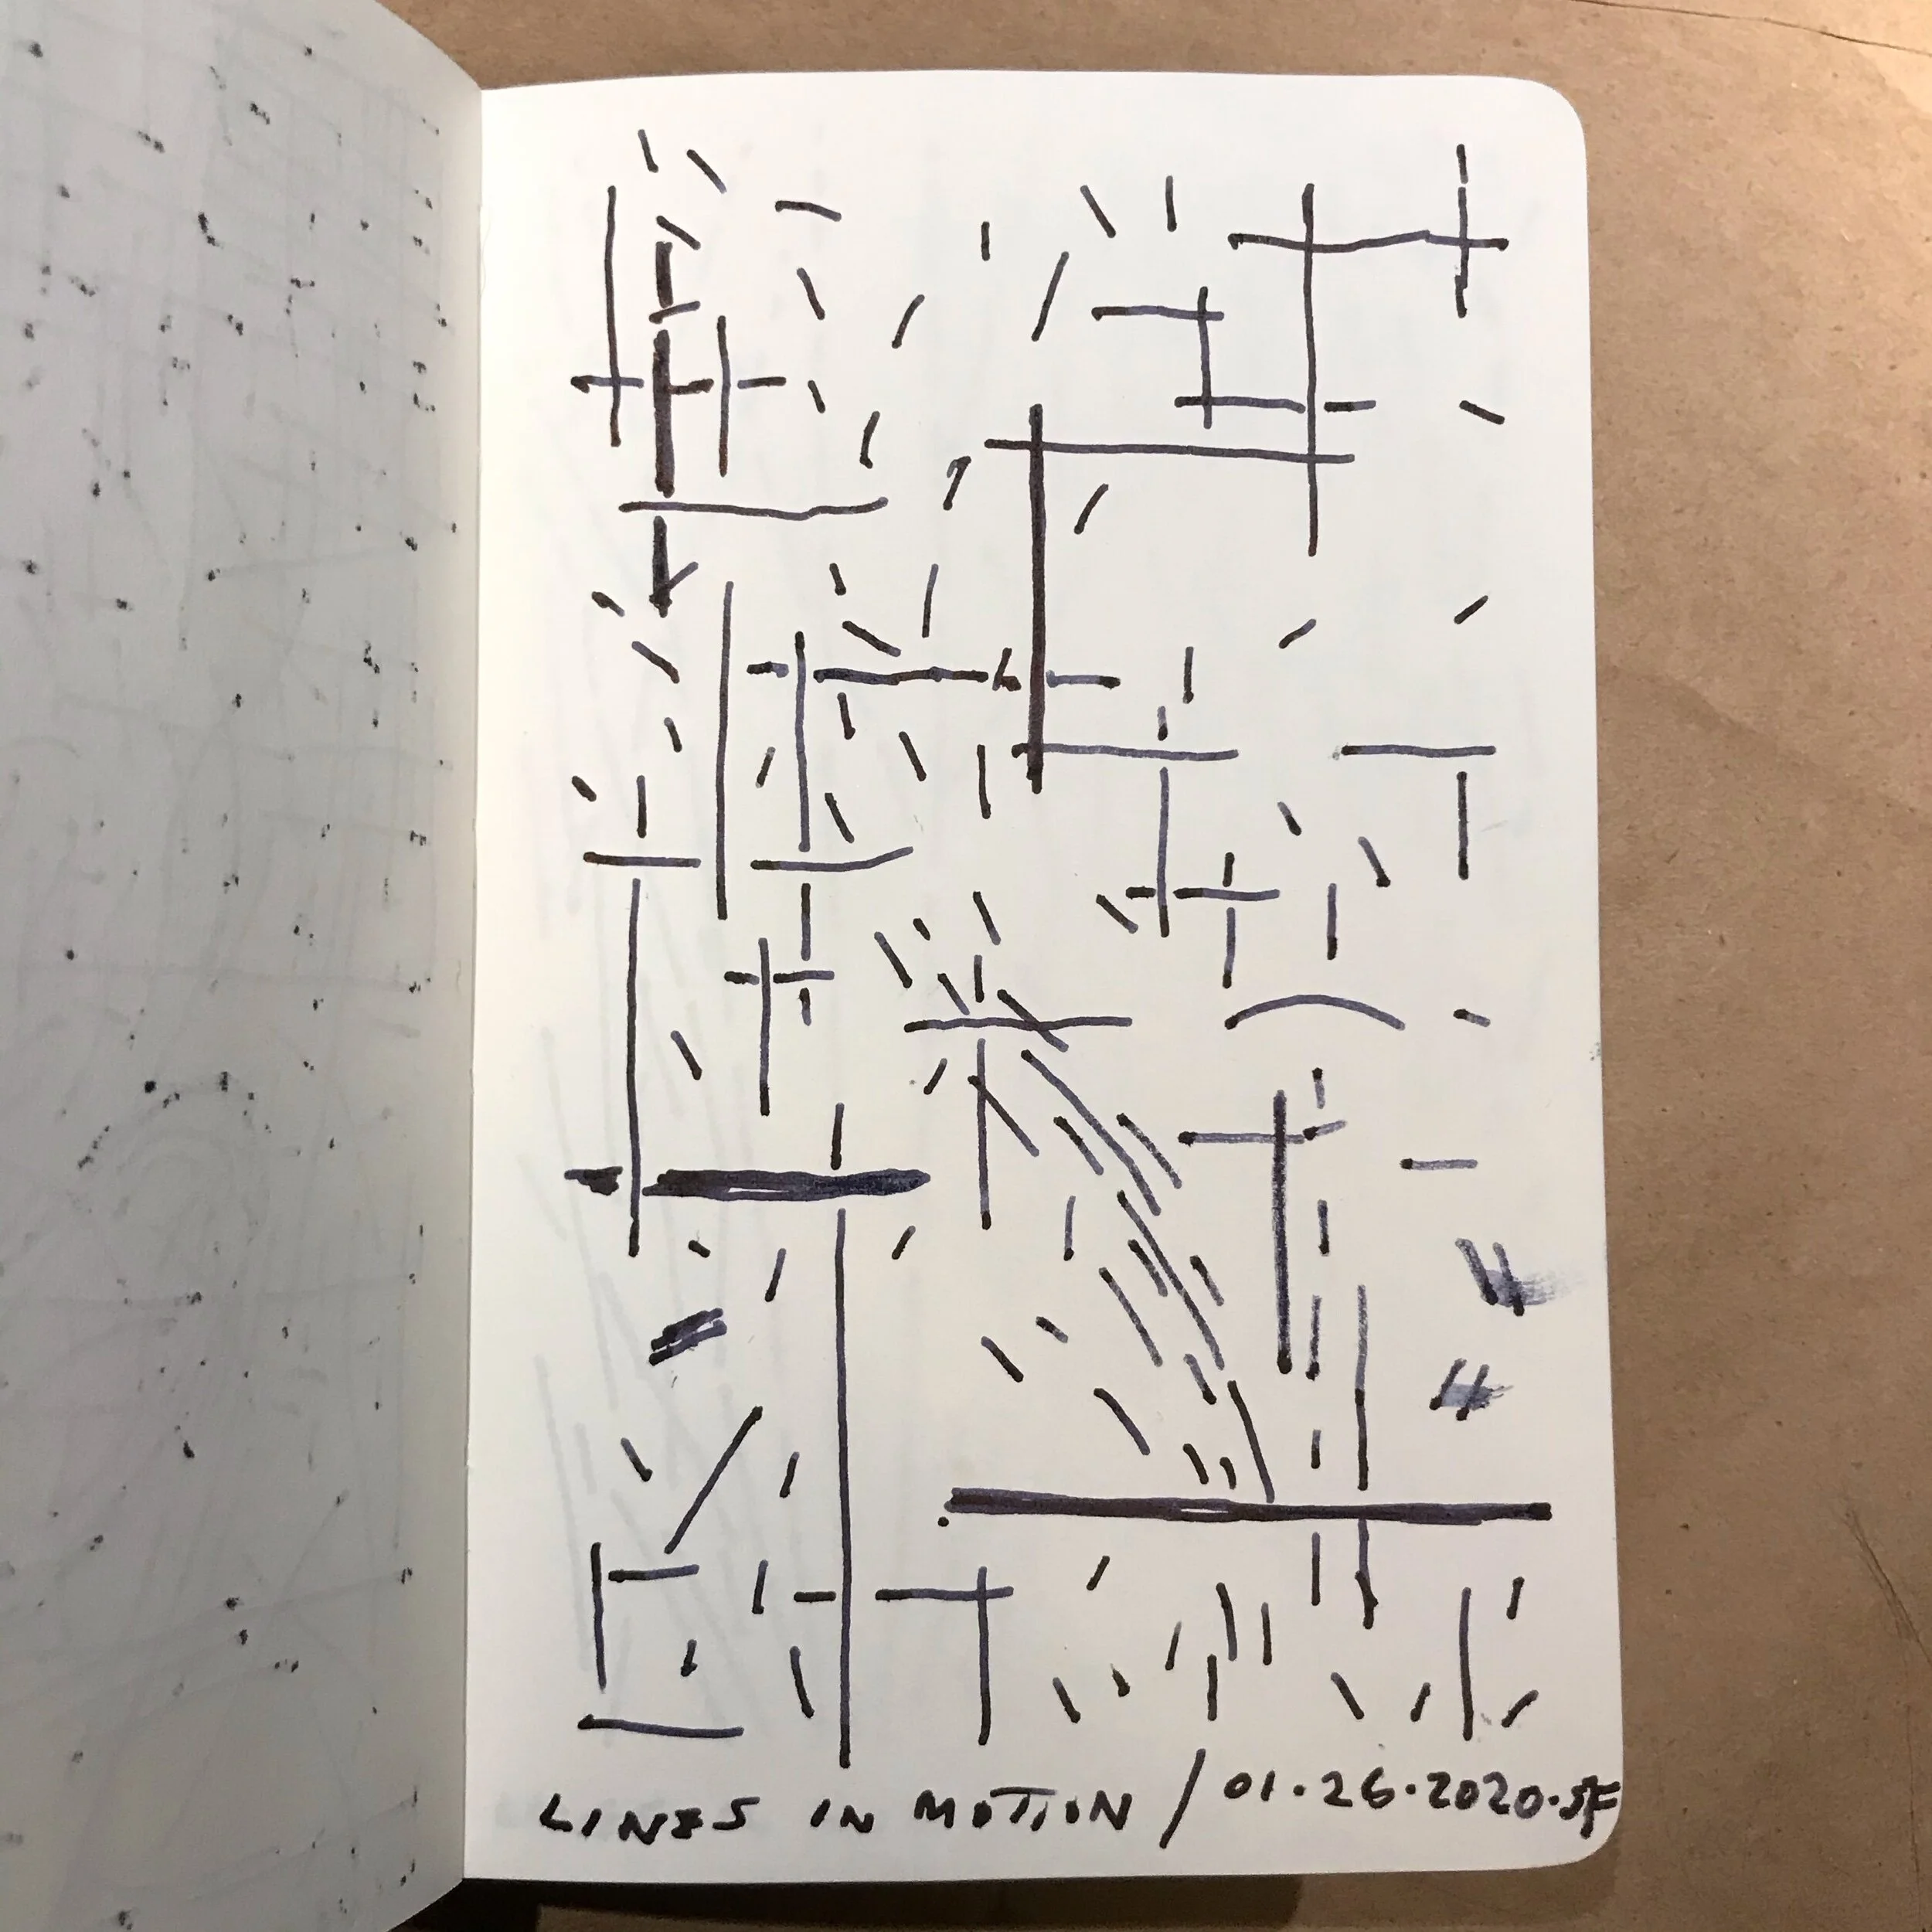 LINES IN MOTION / 01.26.2020.SF